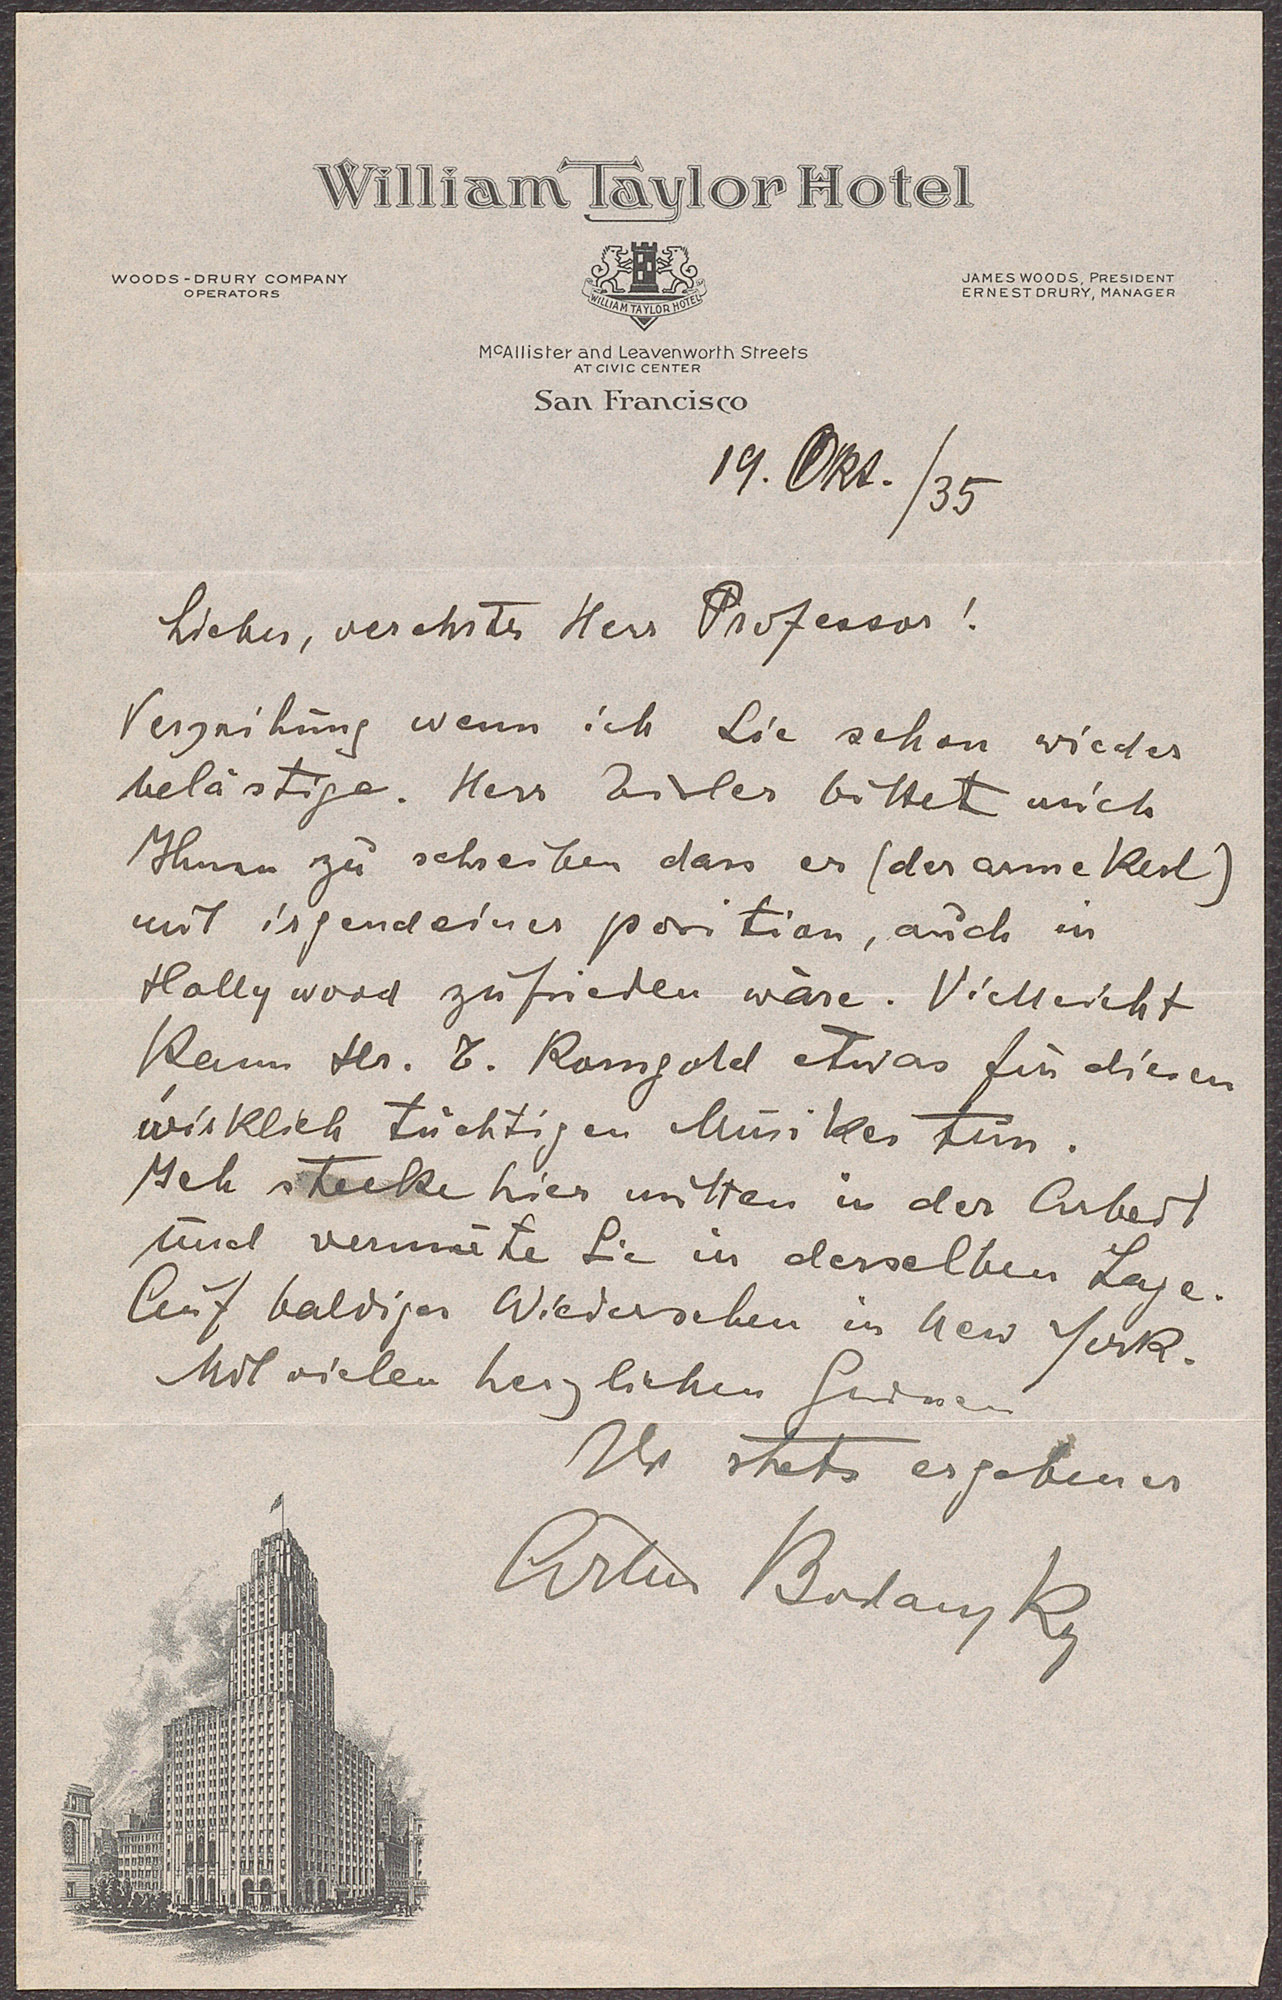 William Taylor Hotel
WOODS-DRURY COMPANY
OPERATORS
WILLIAM TAYLOR HOTEL
JAMES WOODS, PRESIDENT
ERNEST DRURY, MANAGER
McAllister and Leavenworth Streets
AT CIVIC CENTER
San Francisco
19. Okt. /35
Lieber, verehrter Herr Professor!
Verzeihung wenn ich Sie schon wieder
belästige. Herr bittet mich
Ihnen zu schreiben dass er (der arme Kerl)
mit irgendeiner position, auch in
Hollywood zufrieden wäre. Vielleicht
Kann Hr. Korngold etwas für diesen
wirklich tüchtigen Musiker tun.
Ich stecke hier mitten in der Arbeit
und vermute Sie in derselben Lage.
Auf baldiges Wiedersehen in New York.
Mit vielen herzlichen Grüssen
Ihr stets ergebener
Artur Bodanzky